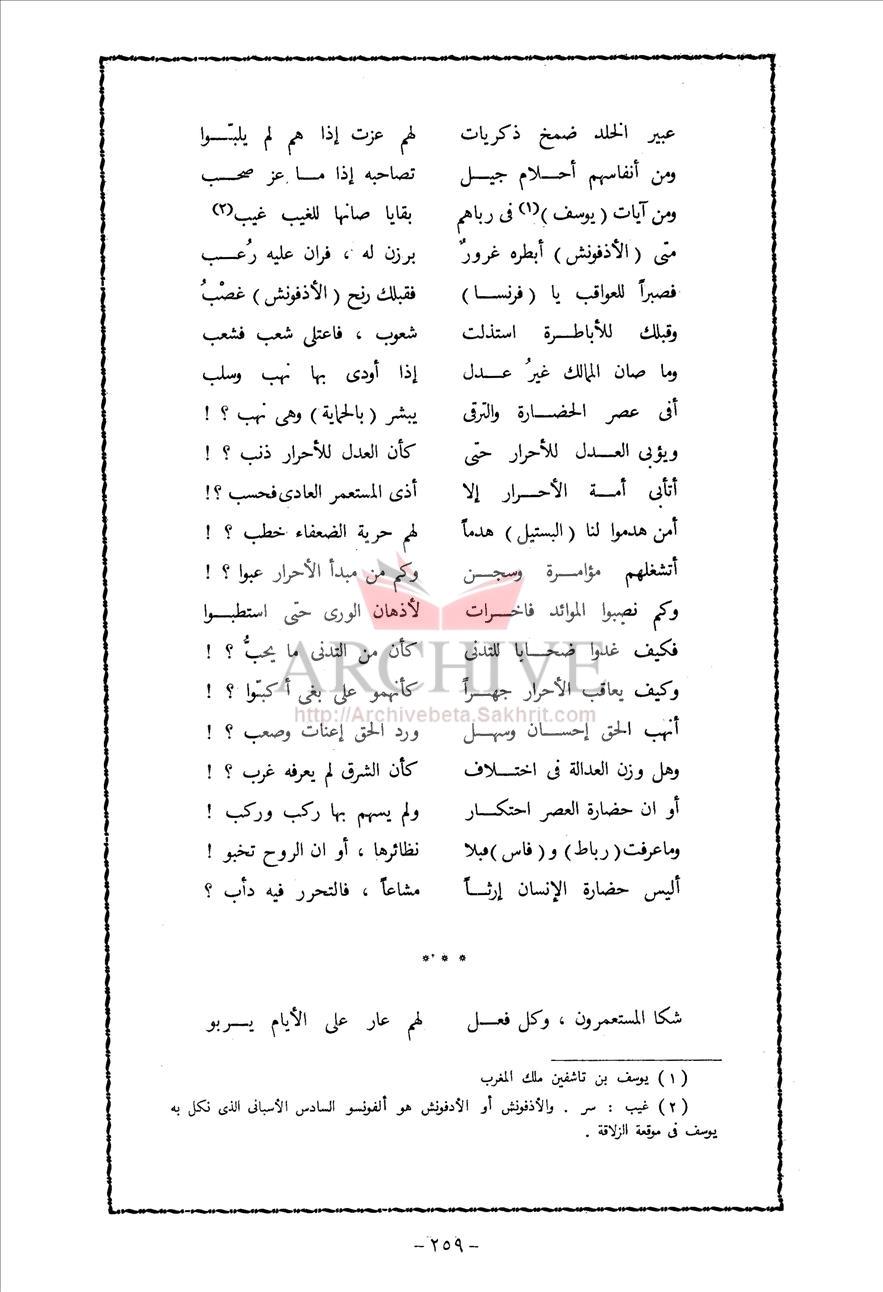 عبير الخلد ضمخ ذكريات لهم عزت إذا هم لم يلبّوا
ومن أنفاسهم أحلام جيل تصاحبه إذا ما عز صحب
ومن آيات ( يوسف )(١) فى رباهم بقايا صانها للغيب غيب(٢)
متى ( الأذفونش ) أبطره غرورٌ برزن له ، فران عليه رُعب
فصبراً للعواقب يا ( فرنسا ) فقبلك رنح ( الأذفونش ) غصْبُ
وقبلك للأباطرة استذلت شعوب ، فاعتلى شعب فشعب
وما صان الممالك غيرُ عدل إذا أودى بها نهب وسلب
أفى عصر الحضارة والترقى يبشر ( بالحماية ) وهى نهب ؟ !
ويؤبى العدل للأحرار حتى كأن العدل للأحرار ذنب ؟ !
أتأبى أمة الأحرار إلا أذى المستعمر العادى فحسب ؟!
أمن هدموا لنا ( البستيل ) هدماً لهم حرية الضعفاء خطب ؟ !
أتشغلهم مؤامرة وسجن وكم من مبدأ الأحرار عبوا ؟ !
وكم نصبوا الموائد فاخرات لأذهان الورى حتى استطبوا
فكيف غدوا ضحايا للتدنى كأن من التدنى ما يحبُّ ؟ !
وكيف يعاقب الأحرار جهراً كأنهمو على بغى أكبّوا ؟ !
أنهب الحق إحسان وسهل ورد الحق إعنات وصعب ؟ !
وهل وزن العدالة فى اختلاف كأن الشرق لم يعرفه غرب ؟ !
أو ان حضارة العصر احتكار ولم يسهم بها ركب وركب !
وما عرفت ( رباط ) و ( فاس ) قبلا نظائرها ، أو ان الروح تخبو !
أليس حضارة الإنسان إرثاً مشاعاً ، فالتحرر فيه دأب ؟
* * *
شكا المستعمرون ، وكل فعل لهم عار على الأيام يربو
( ١ ) يوسف بن تاشفين ملك المغرب
( ٢ ) غيب : سر . والأذفونش أو الأدفونش هو ألفونسو السادس الأسبانى الذى نكل به
يوسف فى موقعة الزلاقة .
ARCHIVE
http://Archivebeta.Sakhrit.com
– ٢٥٩ –